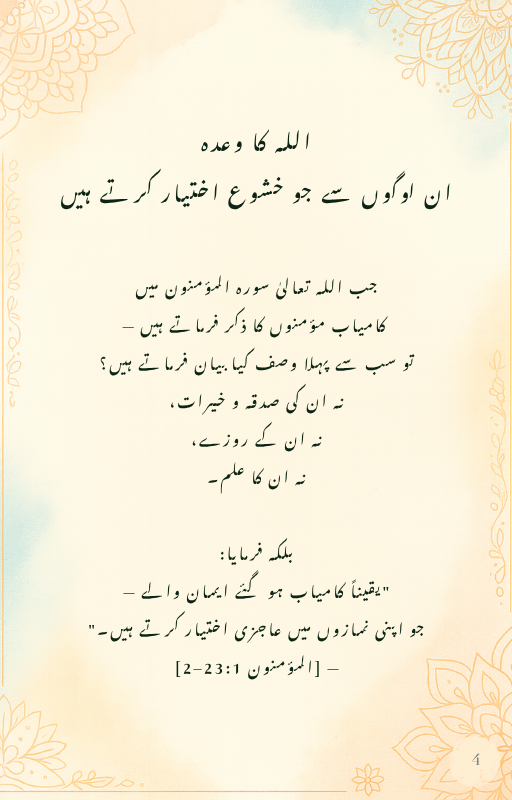 اللہ کا وعدہ
ان لوگوں سے جو خشوع اختیار کرتے ہیں
جب اللہ تعالیٰ سورہ المؤمنون میں
کامیاب مؤمنوں کا ذکر فرماتے ہیں —
تو سب سے پہلا وصف کیا بیان فرماتے ہیں؟
نہ ان کی صدقہ و خیرات،
نہ ان کے روزے،
نہ ان کا علم۔
بلکہ فرمایا:
"یقیناً کامیاب ہو گئے ایمان والے —
جو اپنی نمازوں میں عاجزی اختیار کرتے ہیں۔"
— [المؤمنون 23:1–2]
4